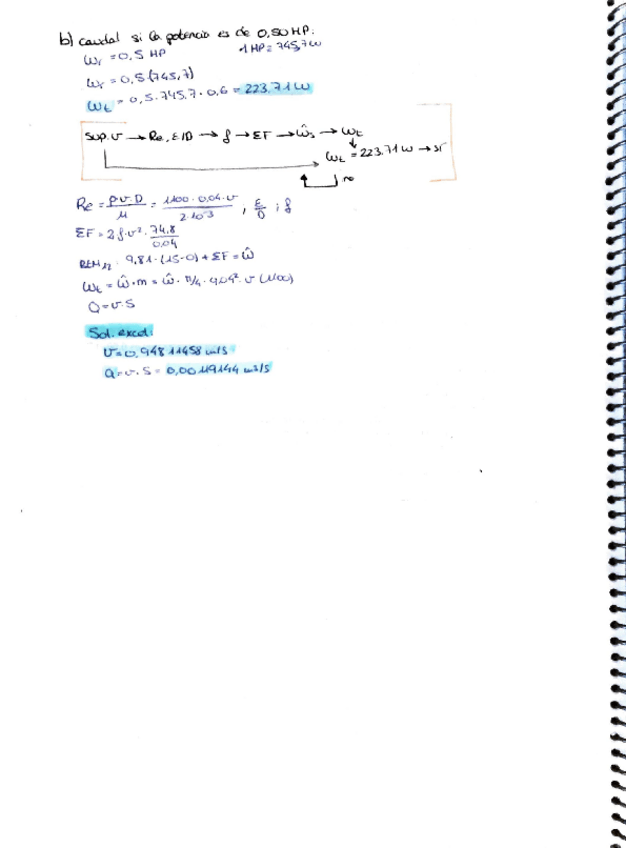 b) caudal si la potencia es de 0,50 HP:
Wr = 0,5 HP 1 HP = 745,7 W
Wr = 0,5 (745,7)
Wt = 0,5 · 745,7 · 0,6 = 223,71 W
sup. v → Re, ε/D → f → ΣF → Ŵs → Wt
Wt = 223,71 W → sí
no
Re = ρ·v·D / μ = 1100 · 0,04 · v / 2·10⁻³ , ε/D ; f
ΣF = 2f·v² · 74,8 / 0,04
9,81 · (15-0) + ΣF = Ŵ
Wt = Ŵ · m = Ŵ · π/4 · 0,04² · v (1100)
Q = v·S
Sol. excel:
v = 0,94811458 m/s
Q = v·S = 0,00119144 m3/s